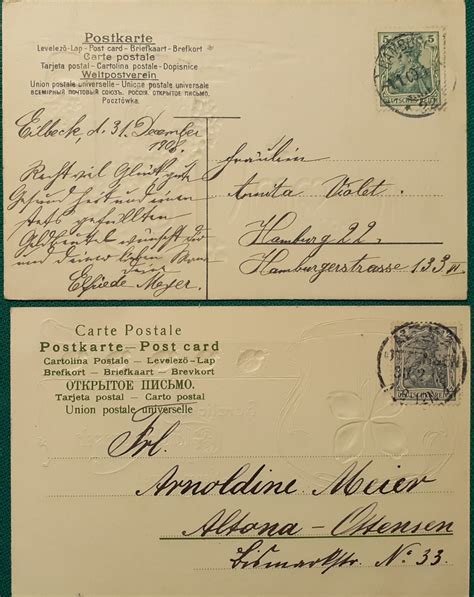 Postkarte
Levelező-Lap - Post card - Briefkaart - Brefkort
Carte postale
Tarjeta postal - Cartolina postale - Dopisnice
Weltpostverein
Union postale universelle - Unione postale universale
ВСЕМІРНЫЙ ПОЧТОВЫЙ СОЮЗЪ. РОССІЯ. ОТКРЫТОЕ ПИСЬМО.
Pocztówka
Eilbeck, d. 31. December
1908.
Recht viel Glück, gute
Gesundheit und einen
stets gefüllten
Geldbeutel wünscht dir
und deinen lieben
deine
Elfriede Meyer.
5 5
HAMBURG
DEUTSCHES REICH
Fräulein
Annita Violet.
Hamburg 22.
Hamburgerstrasse 133 III
Carte Postale
Postkarte - Post card
Cartolina Postale - Levelező-Lap
Brefkort - Briefkaart - Brevkort
ОТКРЫТОЕ ПИСЬМО.
Tarjeta postal - Carto postal
Union postale universelle
DEUTSCHES REICH
Frl.
Arnoldine Meier
Altona - Ottensen
Bismarkstr. No. 33.